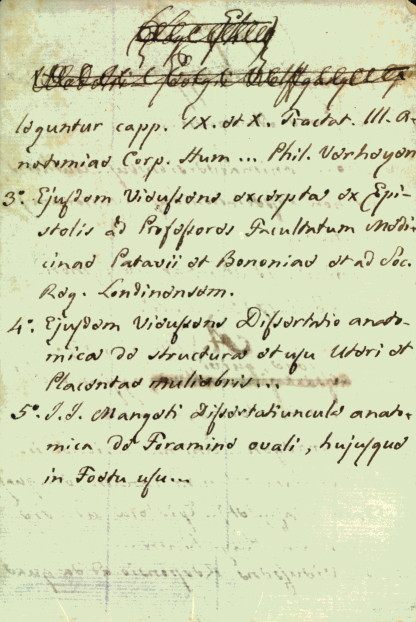 loquuntur capp. IX. et X. Tractat. III. A-
natomiae Corp. Hum... Phil. Verheyen
3º. Ejusdem Vieussens excerpta ex Epi-
stolis ad Professores Facultatum Medi-
cinae Patavii et Bononiae et ad Soc.
Reg. Londinensem.
4º. Ejusdem Vieussens Dissertatio anato-
mica de structura et usu Uteri et
Placentae muliebris...
5º. J. J. Mangeti Dissertatiuncula anato-
mica de Foramine ovali, hujusque
in Foetu usu...